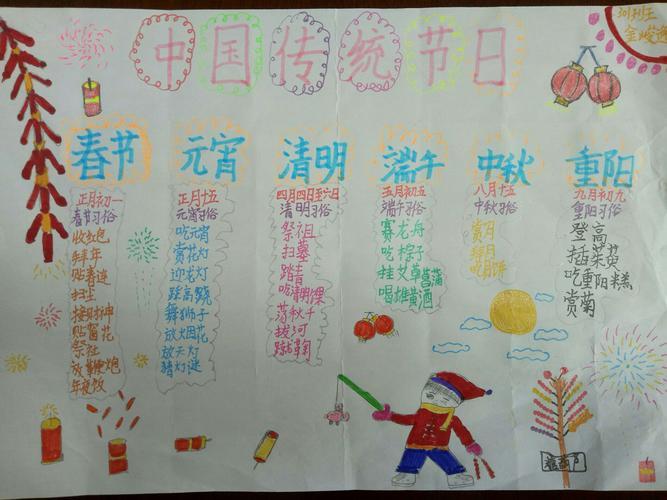 中国传统节日
春节
正月初一
春节习俗
收红包
拜年
贴春连
扫尘
接财神
贴窗花
祭社
放鞭炮
年夜饭
元宵
正月十五
元宵习俗
吃元宵
赏花灯
迎龙灯
踩高跷
舞狮子
放烟花
放天灯
猜灯谜
清明
四月四日至六日
清明习俗
祭祖
扫墓
踏青
吃清明粿
荡秋千
拔河
蹴鞠
端午
五月初五
端午习俗
赛龙舟
吃粽子
挂艾草菖蒲
喝雄黄酒
中秋
八月十五
中秋习俗
赏月
拜月
吃月饼
重阳
九月初九
重阳习俗
登高
插茱萸
吃重阳糕
赏菊